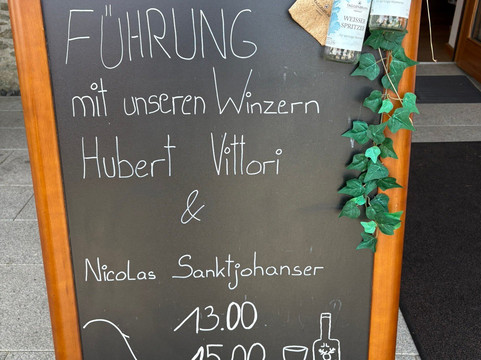 FÜHRUNG
mit unseren Winzern
Hubert Vittori
&
Nicolas Sanktjohanser
13.00
15.00
WEISSER
SPRITZER